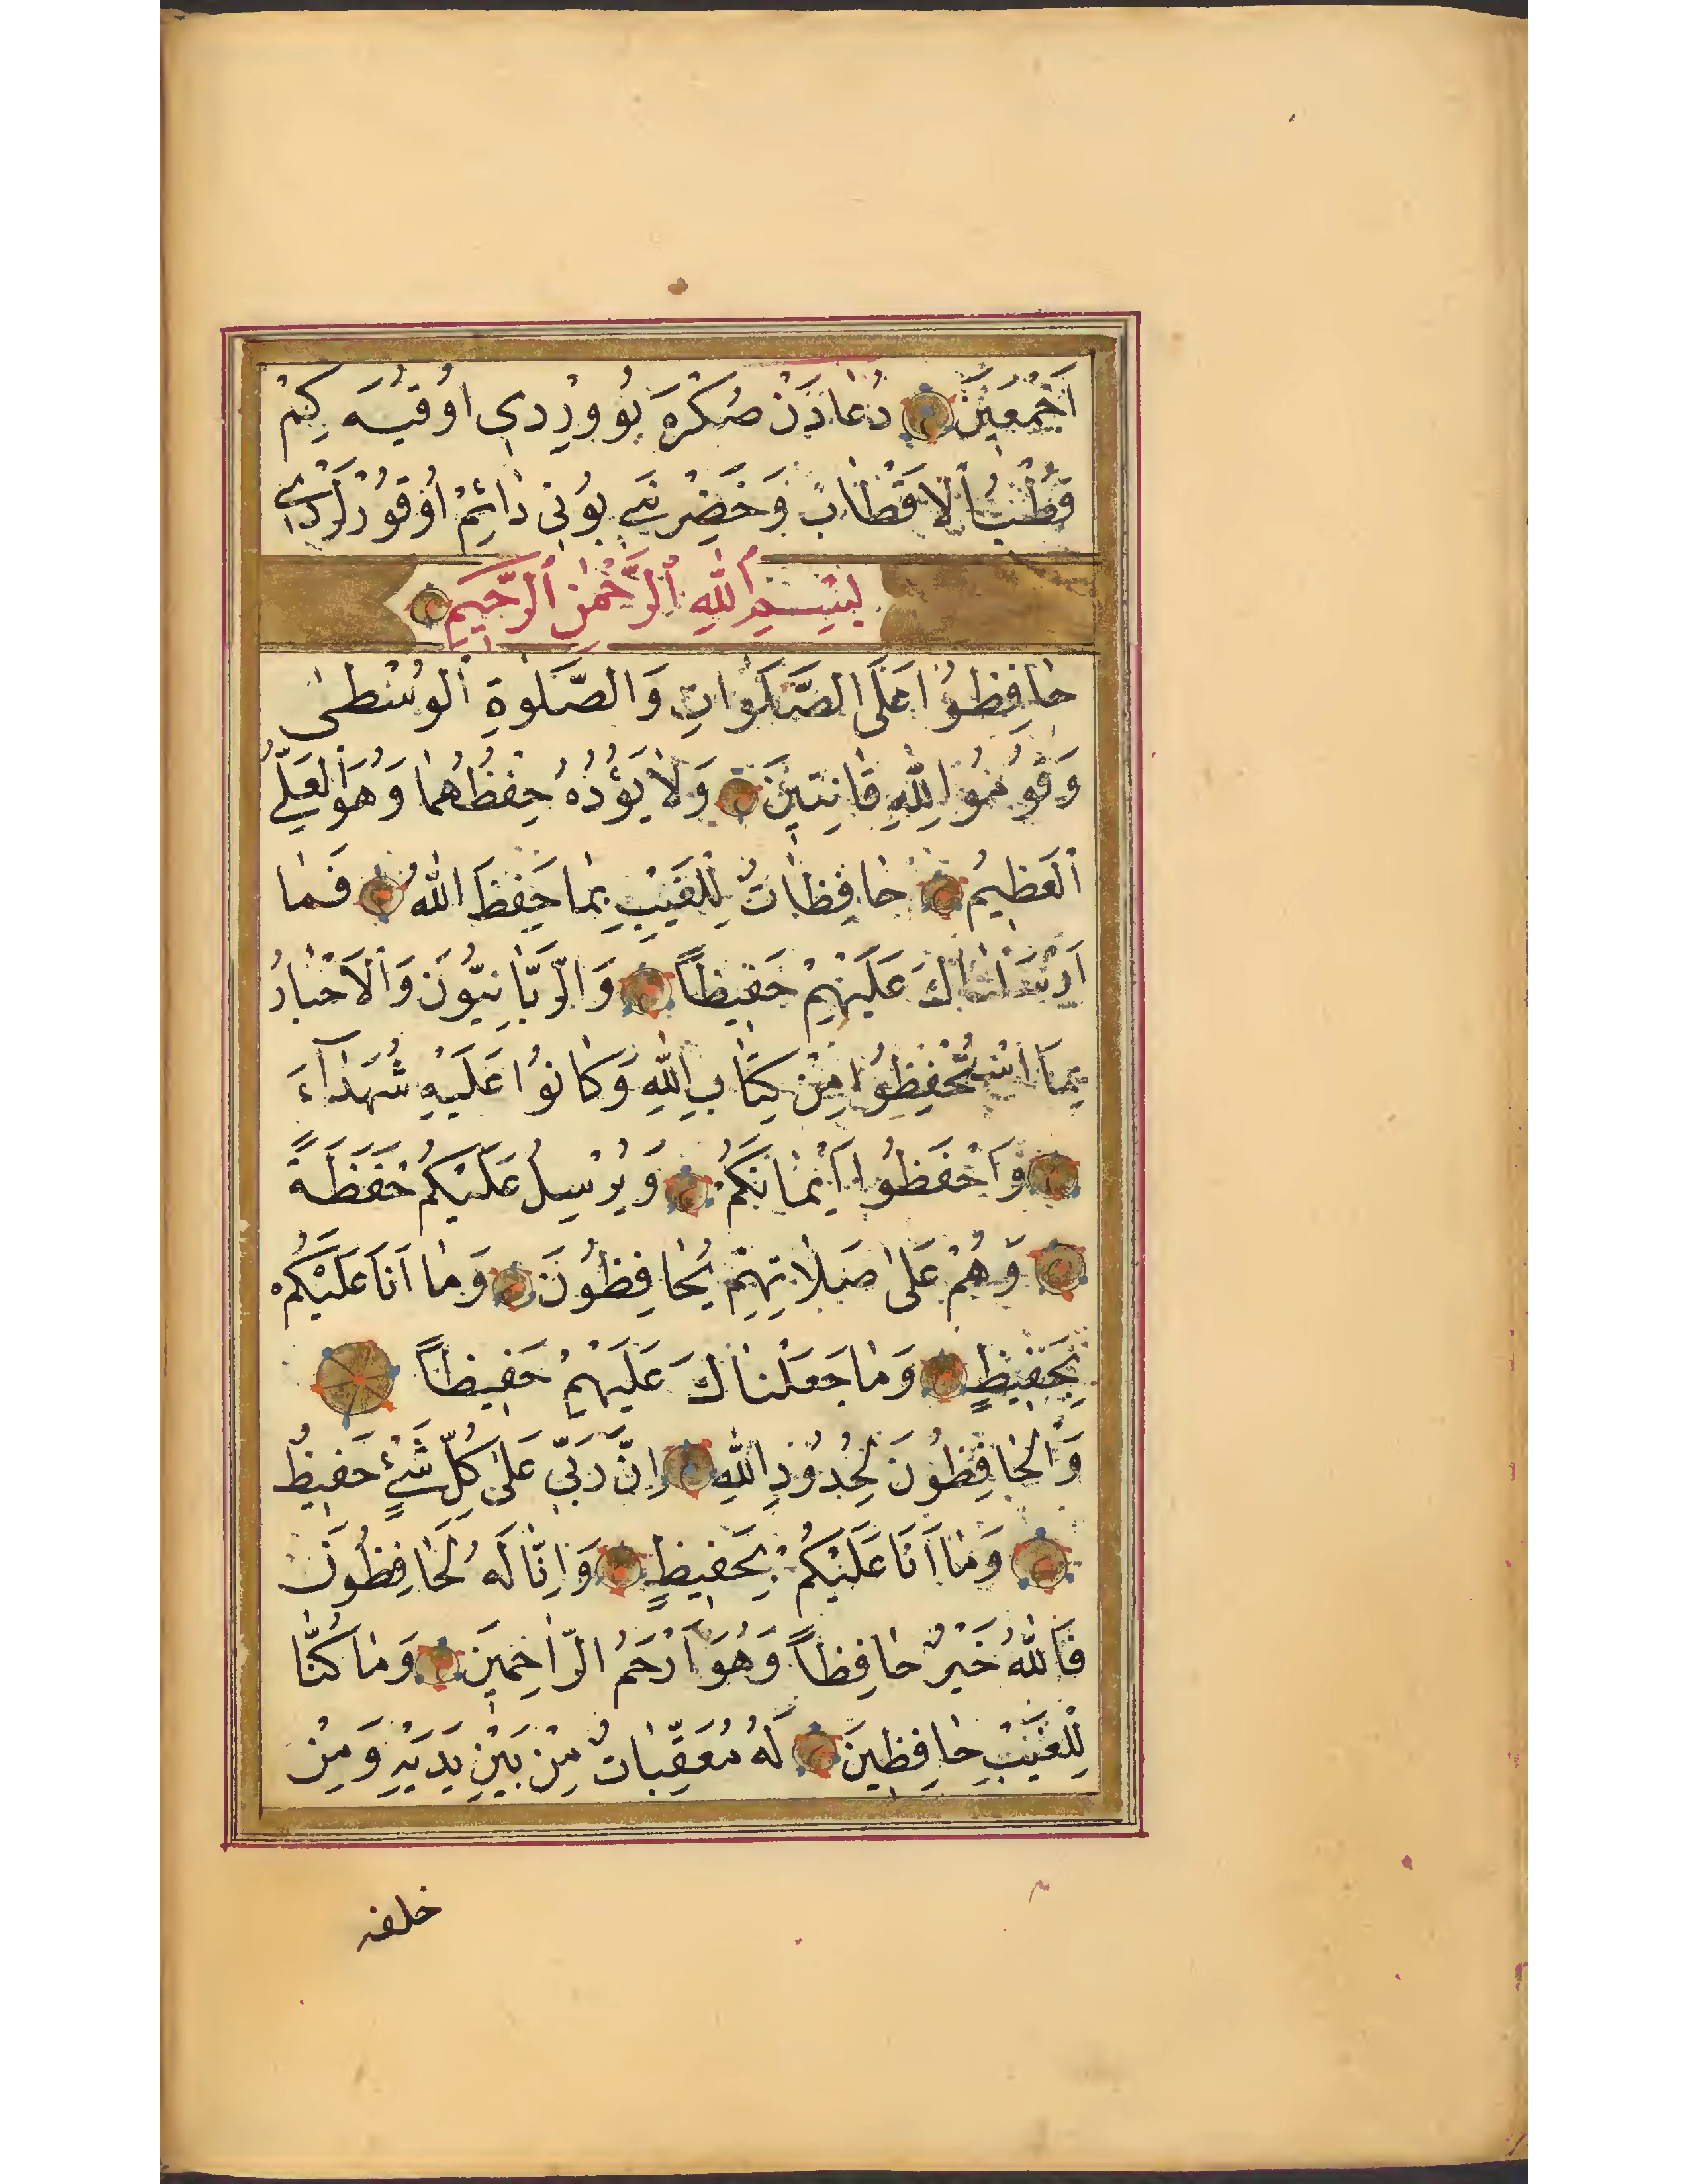 اَجْمَعِينَ دُعَادَنْ صُكْرَه بُو وِرْدِي اوُقُيَه كِمْ
قُطْبُ الْاَقْطَابْ وَ خَضِرْ نَبِي بُونِي دَائِمْ اوُقُورْلَرْدِي
بِسْمِ اللهِ الرَّحْمٰنِ الرَّحِيمِ
حَافِظُوا عَلَى الصَّلَوَاتِ وَالصَّلٰوةِ الْوُسْطٰى
وَقُومُوا لِلّٰهِ قَانِتِينَ وَلَا يَؤُدُهُ حِفْظُهُمَا وَهُوَ الْعَلِيُّ
الْعَظِيمُ حَافِظَاتٌ لِلْغَيْبِ بِمَا حَفِظَ اللهُ فَمَا
اَرْسَلْنَاكَ عَلَيْهِمْ حَفِيظًا وَالرَّبَّانِيُّونَ وَالْاَحْبَارُ
بِمَا اسْتُحْفِظُوا مِنْ كِتَابِ اللهِ وَكَانُوا عَلَيْهِ شُهَدَآءَ
وَاحْفَظُوا اَيْمَانَكُمْ وَيُرْسِلُ عَلَيْكُمْ حَفَظَةً
وَهُمْ عَلٰى صَلَاتِهِمْ يُحَافِظُونَ وَمَا اَنَا عَلَيْكُمْ
بِحَفِيظٍ وَمَا جَعَلْنَاكَ عَلَيْهِمْ حَفِيظًا
وَالْحَافِظُونَ لِحُدُودِ اللهِ اِنَّ رَبِّي عَلٰى كُلِّ شَيْءٍ حَفِيظٌ
وَمَا اَنَا عَلَيْكُمْ بِحَفِيظٍ وَاِنَّا لَهُ لَحَافِظُونَ
فَاللهُ خَيْرٌ حَافِظًا وَهُوَ اَرْحَمُ الرَّاحِمِينَ وَمَا كُنَّا
لِلْغَيْبِ حَافِظِينَ لَهُ مُعَقِّبَاتٌ مِنْ بَيْنِ يَدَيْهِ وَمِنْ
خلفه